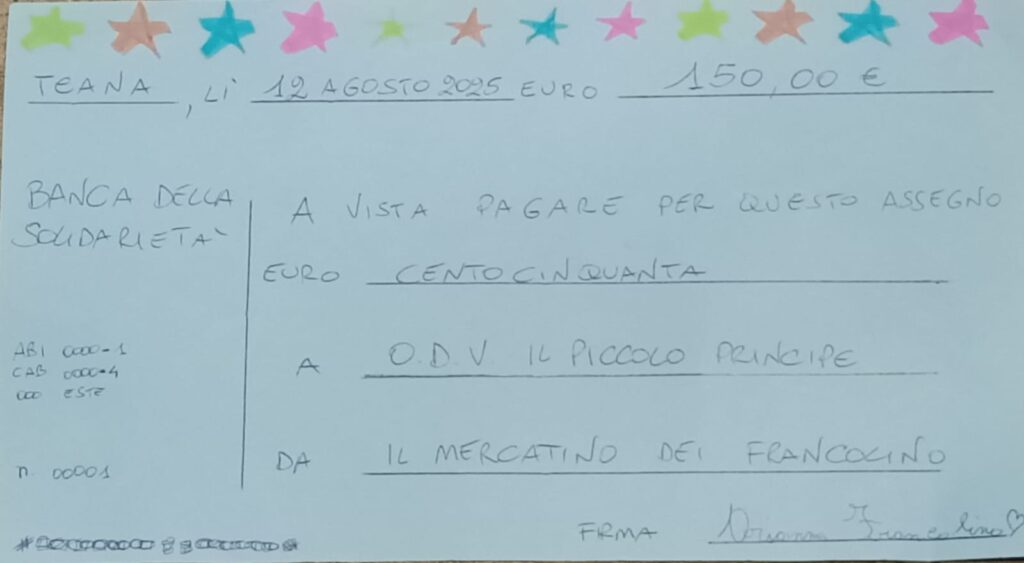 TEANA, LÌ 12 AGOSTO 2025 EURO 150,00 €
BANCA DELLA
SOLIDARIETA'
A VISTA PAGARE PER QUESTO ASSEGNO
EURO CENTOCINQUANTA
ABI 0000-1
CAB 0000-4
000 ESTE
A O.D.V. IL PICCOLO PRINCIPE
n. 00001
DA IL MERCATINO DEI FRANCOLINO
FIRMA Francolino